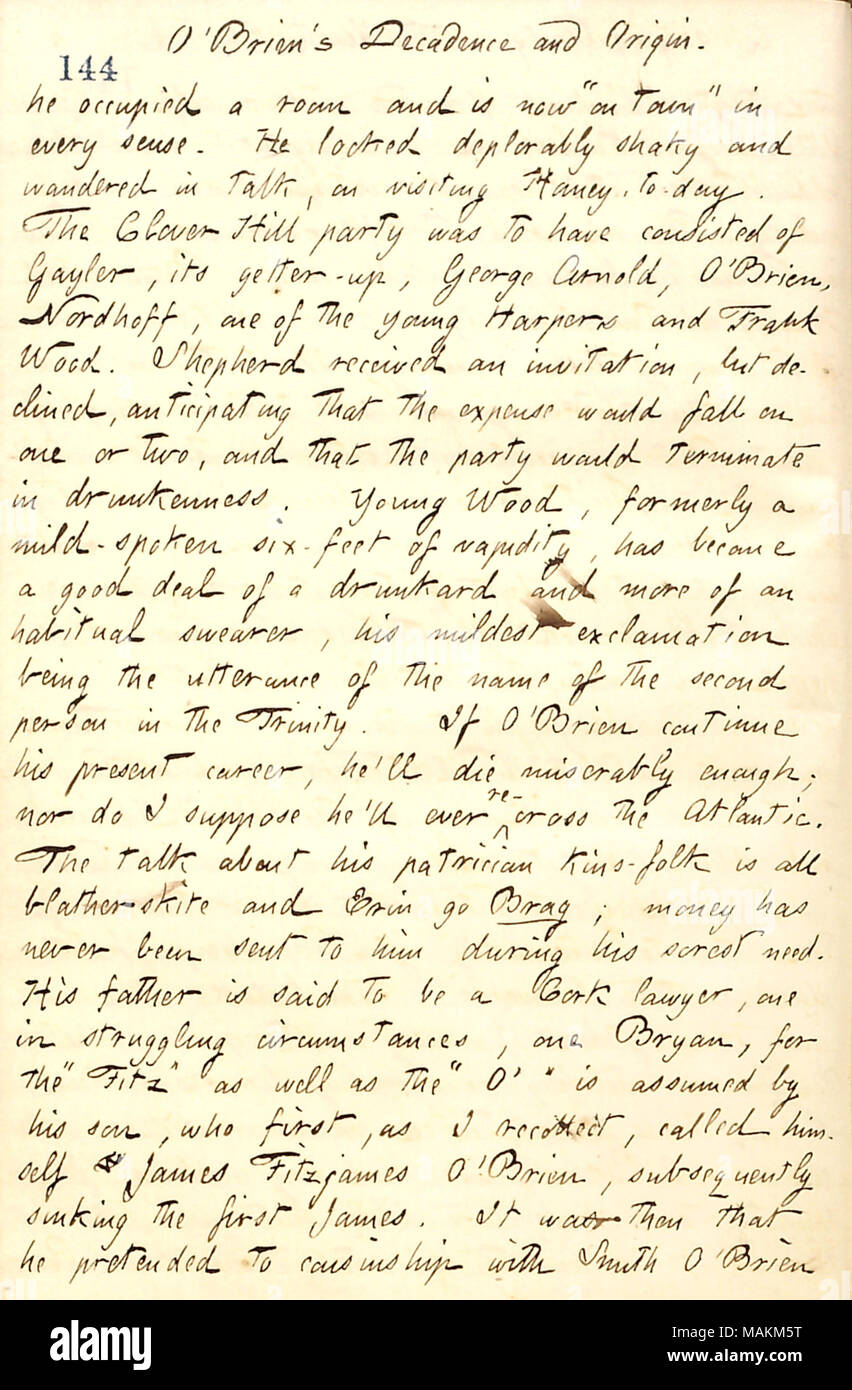 O'Brien's Decadence and Origin.
144
he occupied a room and is now "on town" in
every sense. He looked deplorably shaky and
wandered in talk, on visiting Haney, to-day.
The Clover Hill party was to have consisted of
Gayler, its getter-up, George Arnold, O'Brien,
Nordhoff, one of the young Harpers and Frank
Wood. Shepherd received an invitation, but de-
clined, anticipating that the expense would fall on
one or two, and that the party would terminate
in drunkenness. Young Wood, formerly a
mild-spoken six-feet of vapidity, has become
a good deal of a drunkard and more of an
habitual swearer, his mildest exclamation
being the utterance of the name of the second
person in the Trinity. If O'Brien continue
his present career, he'll die miserably enough;
nor do I suppose he'll ever re-cross the Atlantic.
The talk about his patrician kins-folk is all
blatherskite and Erin go Brag; money has
never been sent to him during his sorest need.
His father is said to be a Cork lawyer, one
in struggling circumstances, one Bryan, for
the "Fitz" as well as the "O'" is assumed by
his son, who first, as I recollect, called him-
self James Fitzjames O'Brien, subsequently
sinking the first James. It was then that
he pretended to cousinship with Smith O'Brien
alamy
Image ID: MAKM5T
www.alamy.com